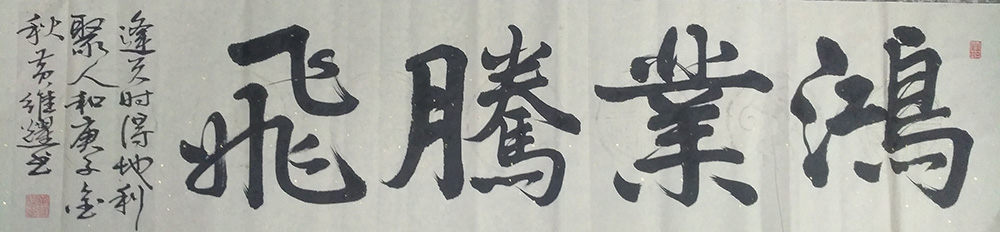 鴻業騰飛
逢天时得地利
聚人和庚子金
秋黄維耀书